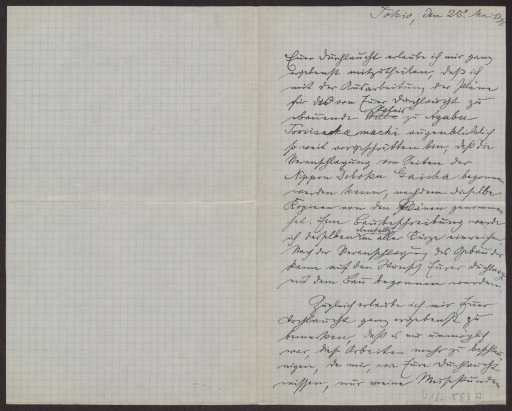 Tokio, den 26. Mai
Euer Durchlaucht erlaube ich mir ganz
ergebenst mitzutheilen, daß ich
mit der Ausarbeitung der Pläne
für das von Euer Durchlaucht zu
erbauende Palais zu Azabu
augenblicklich
so weit vorgeschritten bin, daß die
Veranschlagung von Seiten der
Nippon Doboku Gaisha begonnen
werden kann, nachdem dieselbe
Kopieen von den Plänen genommen
hat. Eine Baubeschreibung werde
ich derselben in aller Kürze einreichen.
Nach der Veranschlagung des Gebäudes
kann auf den Wunsch Eurer Durchlaucht
mit dem Bau begonnen werden.
Zugleich erlaube ich mir Euer
Durchlaucht ganz ergebenst zu
bemerken, daß es mir unmöglich
war, diese Arbeiten mehr zu beschleu-
nigen, da mir, wie Eure Durchlaucht
wissen, nur meine Mußestunden